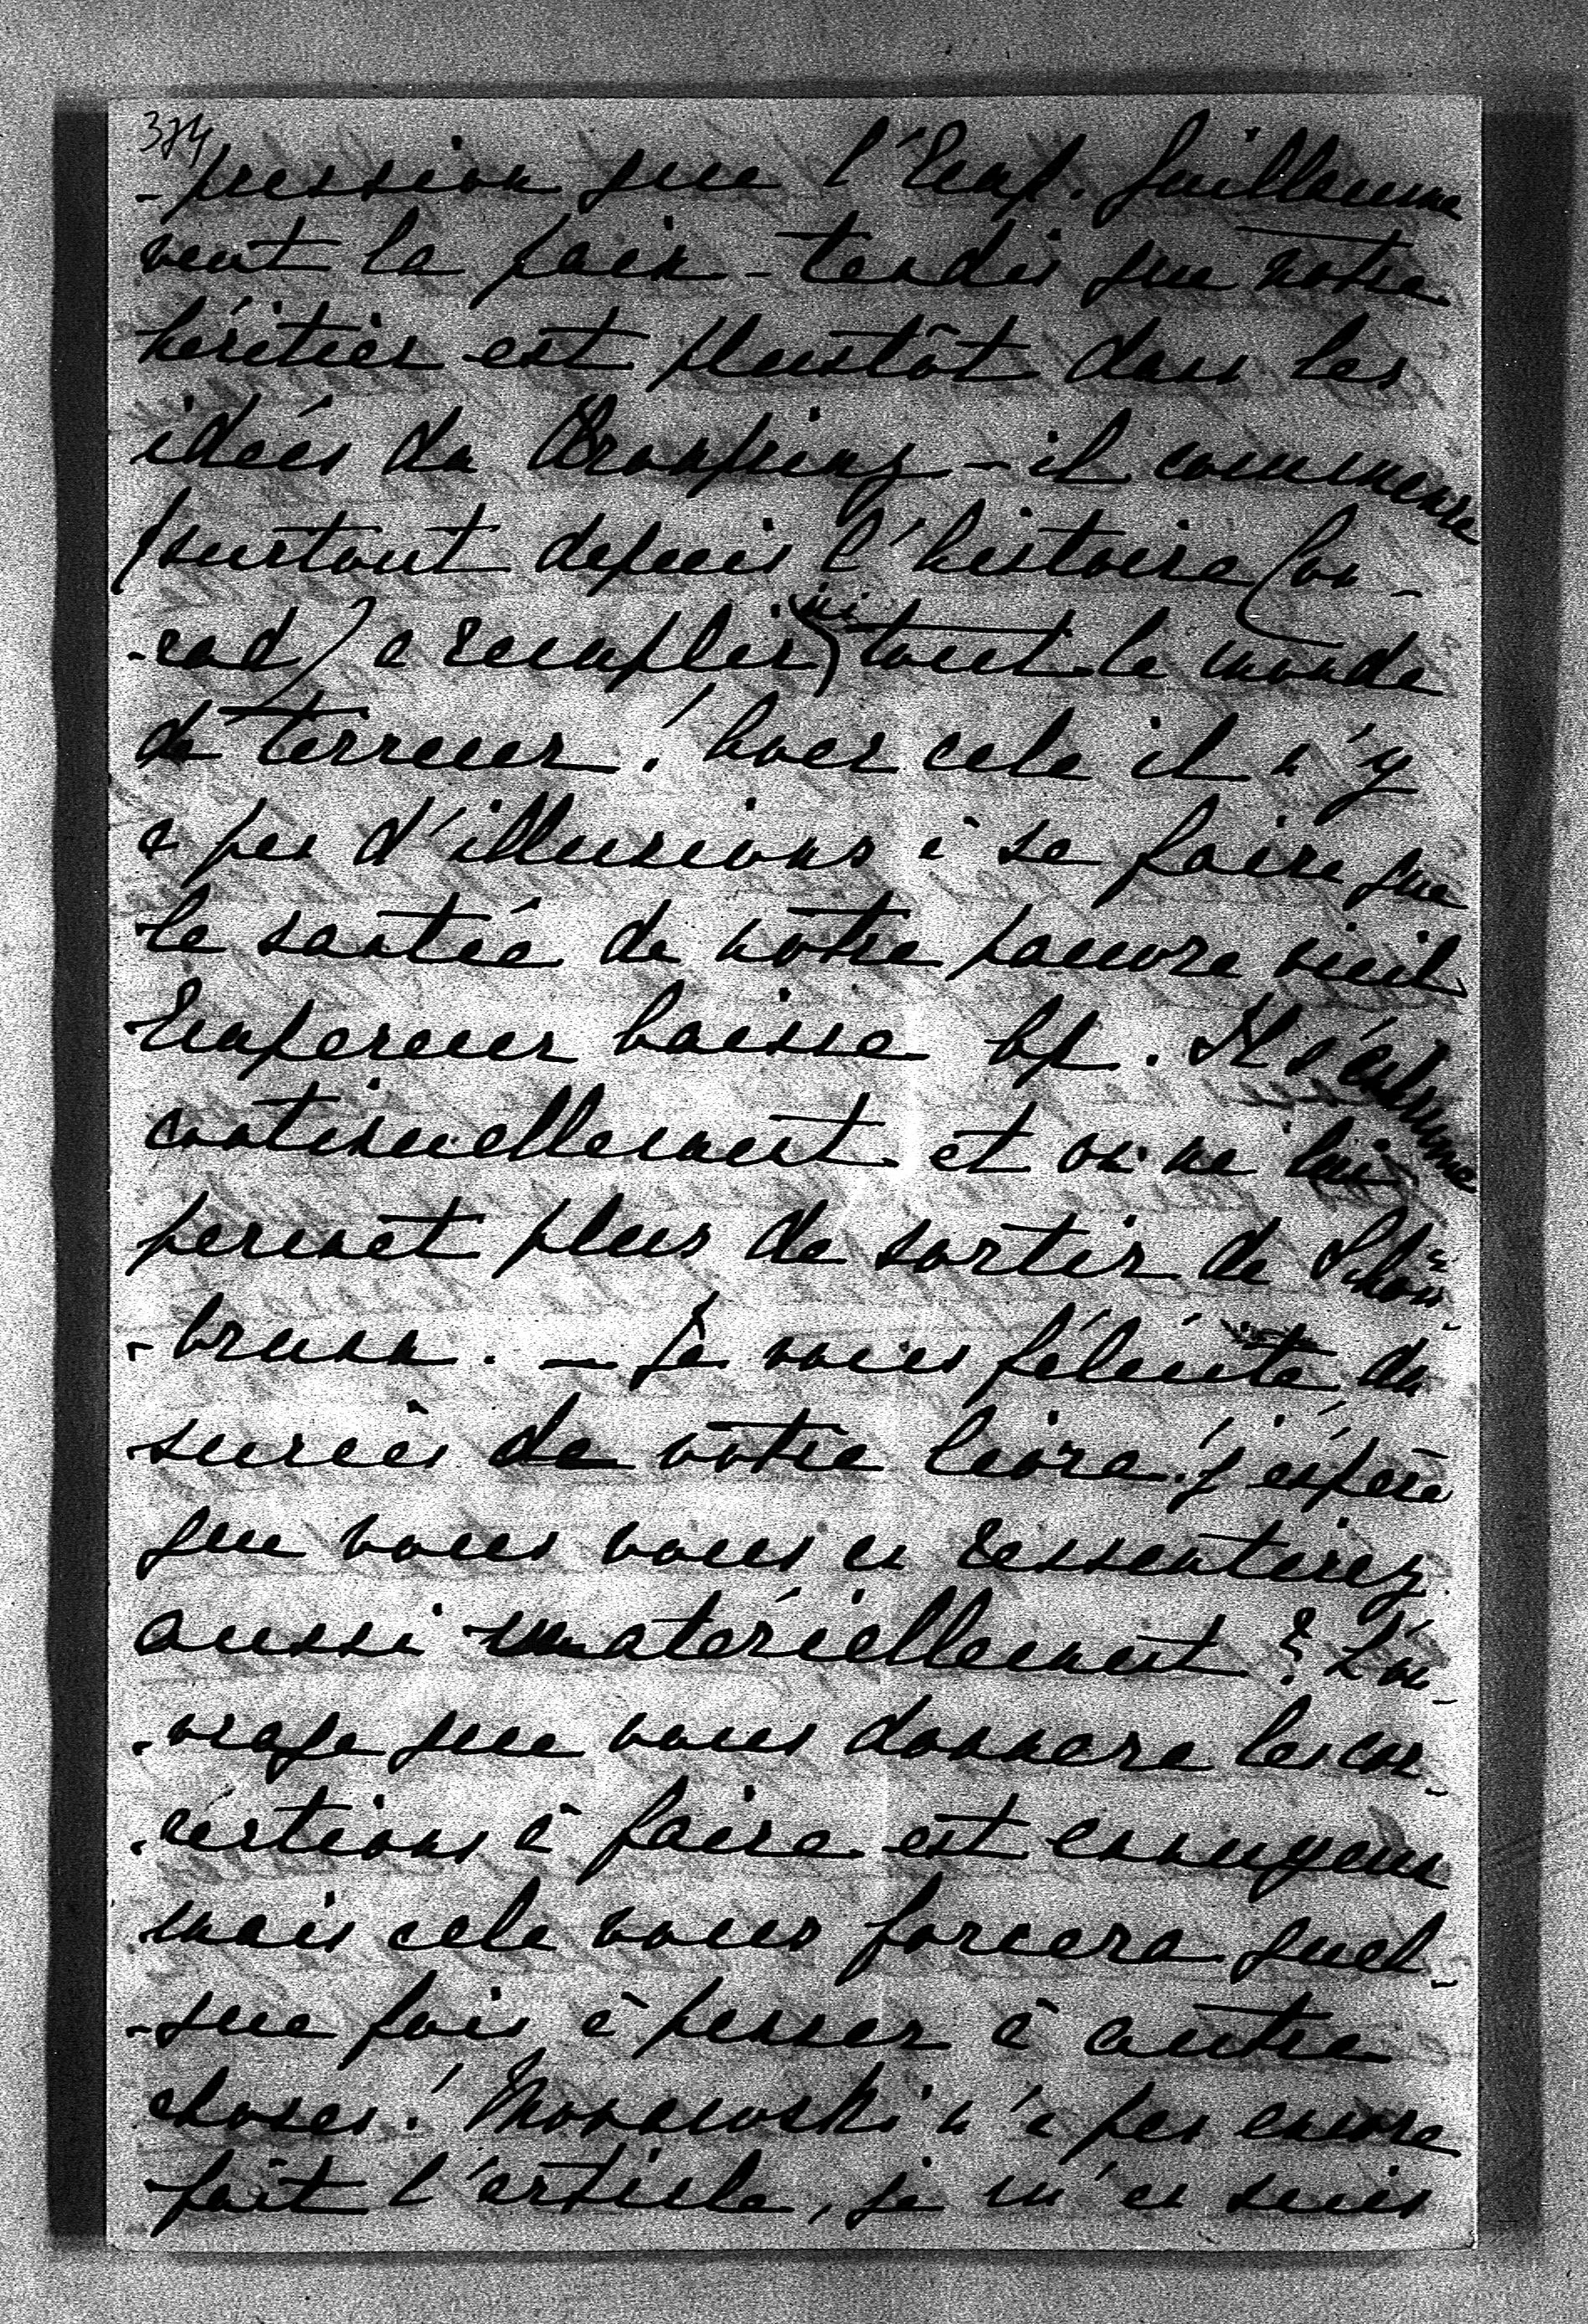 374
-pression que l'Emp. Guillaume
veut la paix - tandis que notre
héritier est plustôt dans les
idées du Kronprinz - il commence
(surtout depuis l'histoire Con-
-rad) a remplir tout le monde
de terreur! Avec cela il n'y
a pas d'illusions à se faire que
la santée de notre pauvre vieil
Empereur baisse bp. Il s'enrhume
continuellement et on ne lui
permet plus de sortir de Schön-
-brunn. - Je vous félicite du
succès de votre livre! j'espère
que vous vous en ressentirez
aussi matériellement? L'ou-
-vrage que vous donnera les cor-
-rections à faire est ennuyeux
mais cela vous forcera quel-
-que fois à penser à autre
choses! Morawski n'a pas encore
fait l'article, je m'en suis